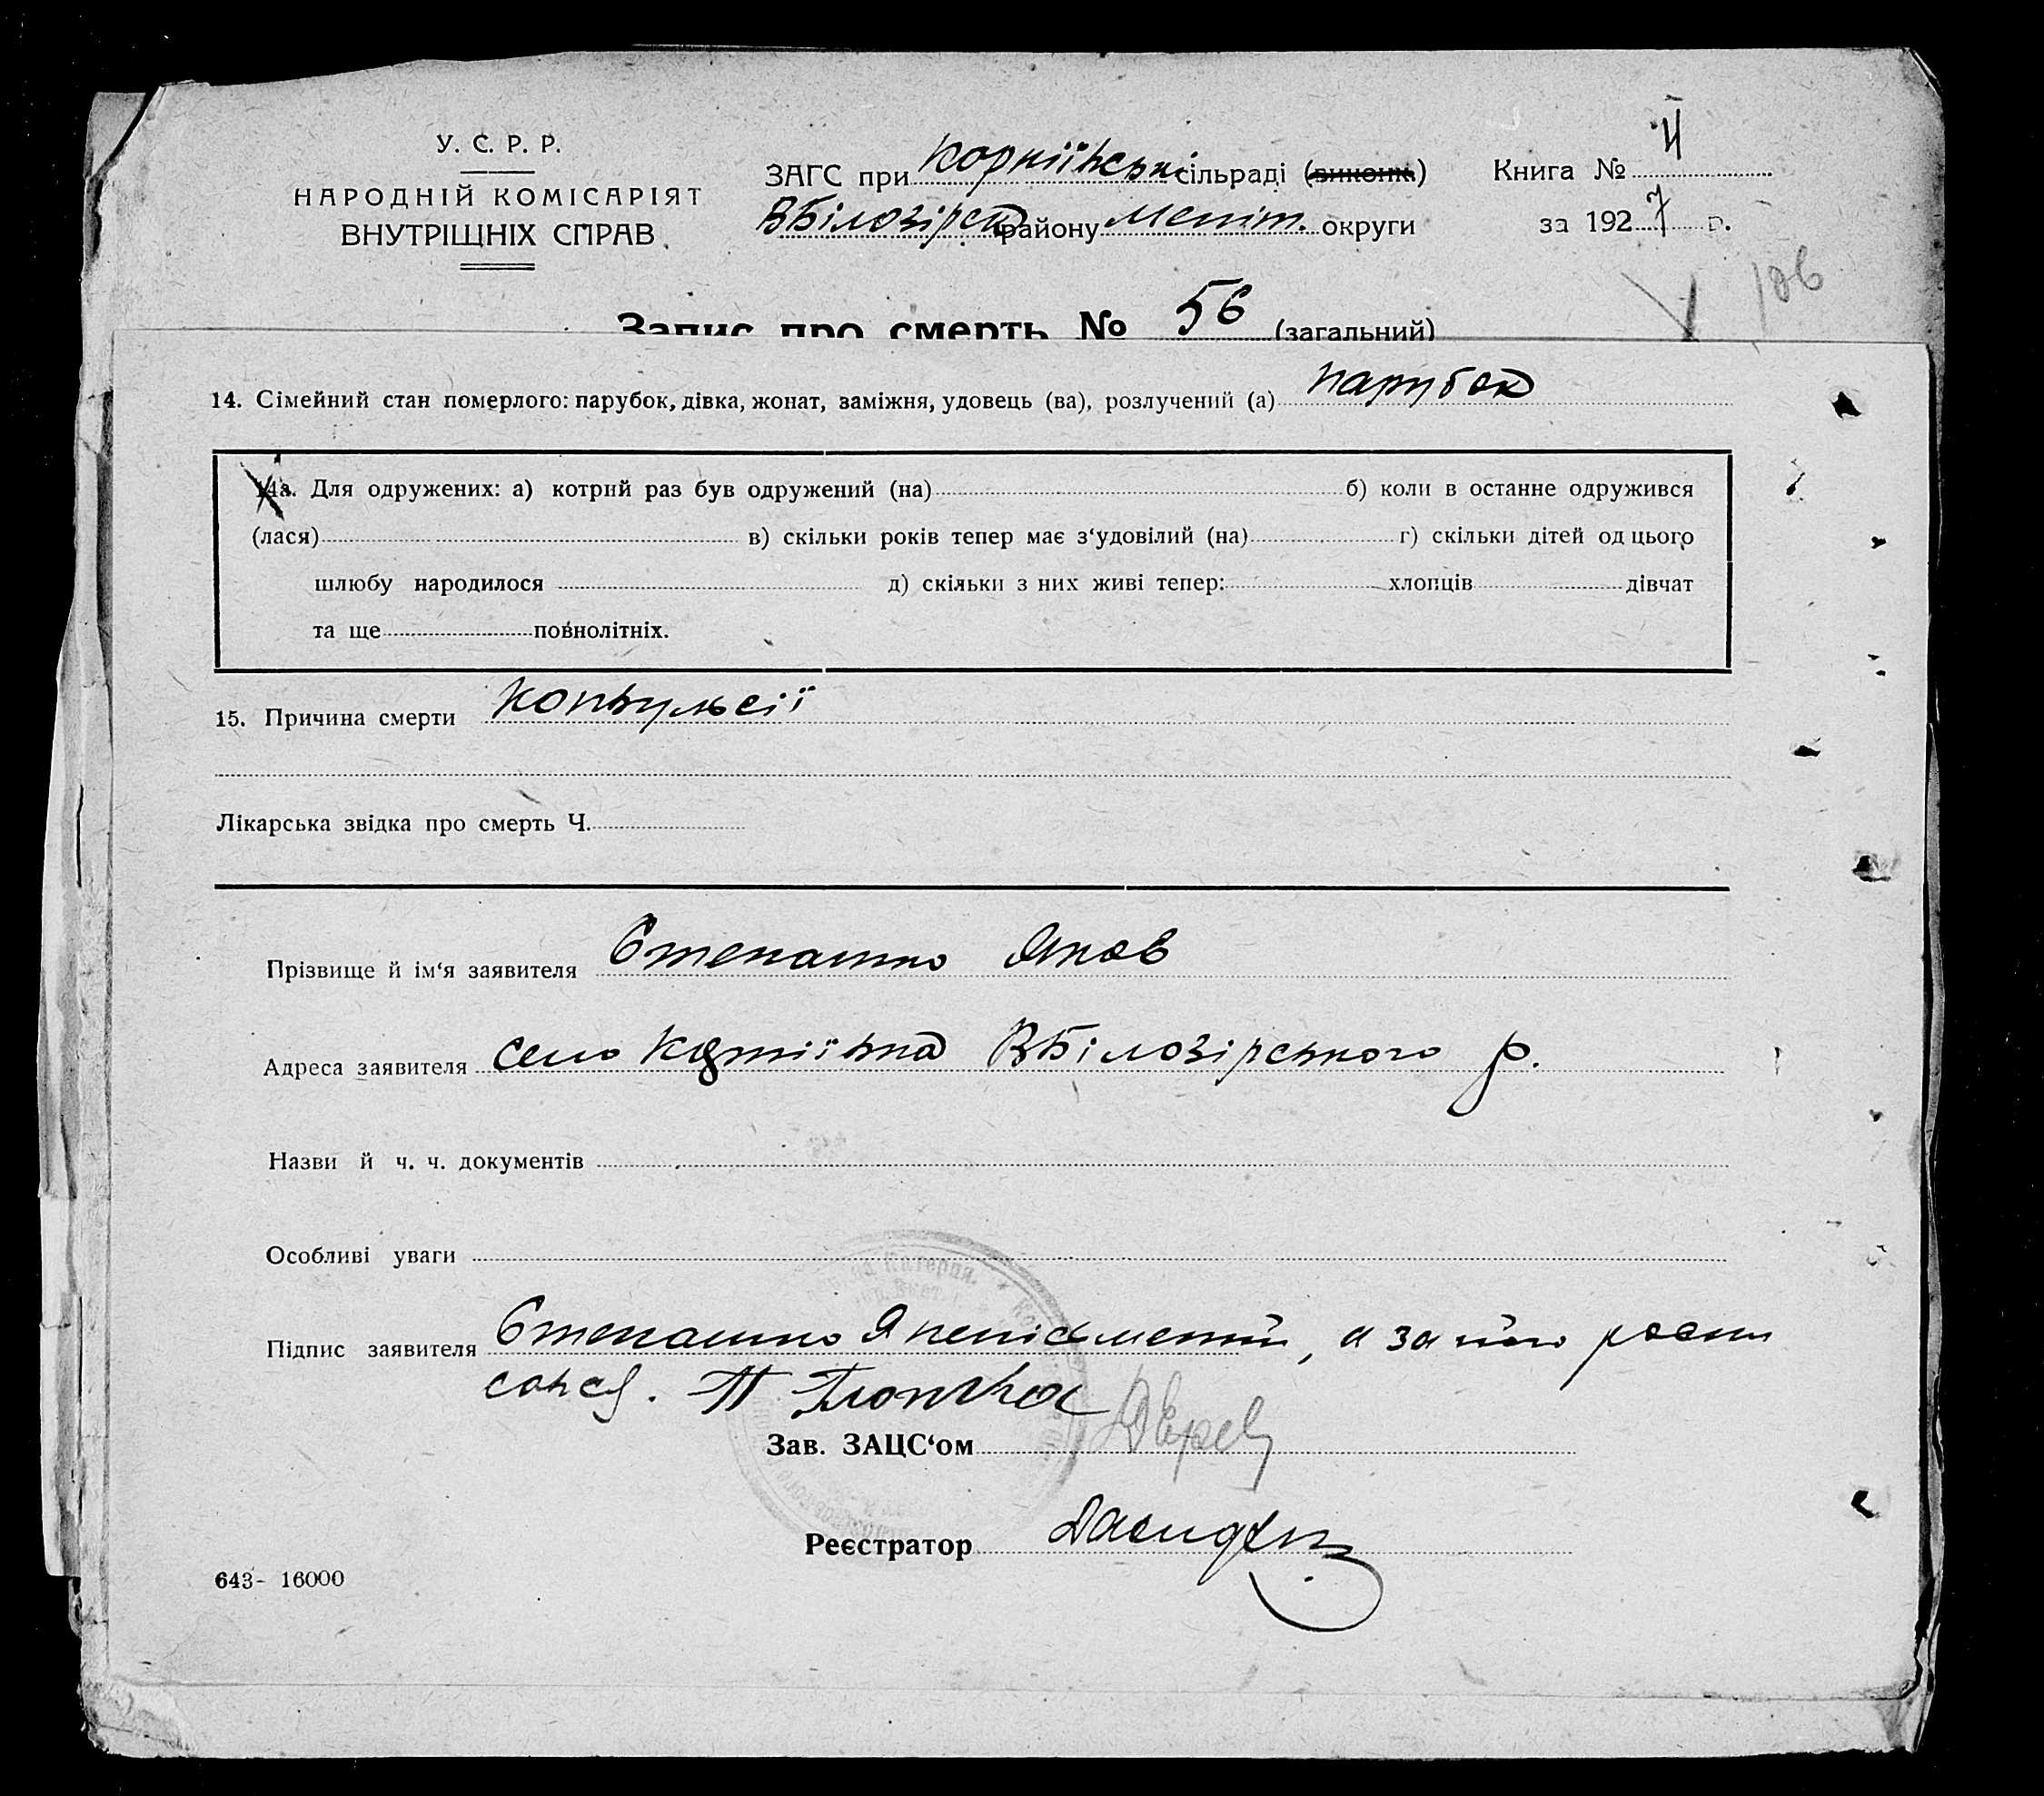 У. С. Р. Р.
НАРОДНІЙ КОМІСАРІЯТ
ВНУТРІШНІХ СПРАВ
ЗАГС при Корніївські сільраді (виконк.)
ВБілозірск району Меліт. округи
Книга № II
за 1927 р.
106
Запис про смерть № 56 (загальний)
14. Сімейний стан померлого: парубок, дівка, жонат, заміжня, удовець (ва), розлучений (а) парубок
14а. Для одружених: а) котрий раз був одружений (на) б) коли в останне одружився
(лася) в) скільки років тепер має з‘удовілий (на) г) скільки дітей од цього
шлюбу народилося д) скільки з них живі тепер: хлопців дівчат
та ще повнолітніх.
15. Причина смерти конвульсії
Лікарська звідка про смерть Ч.
Прізвище й ім‘я заявителя Степашко Яков
Адреса заявителя село ВБілозірського р.
Назви й ч. ч. документів
Особливі уваги
Підпис заявителя Степашко Я неписьмений, а за його
Зав. ЗАЦС‘ом
Реєстратор
643- 16000